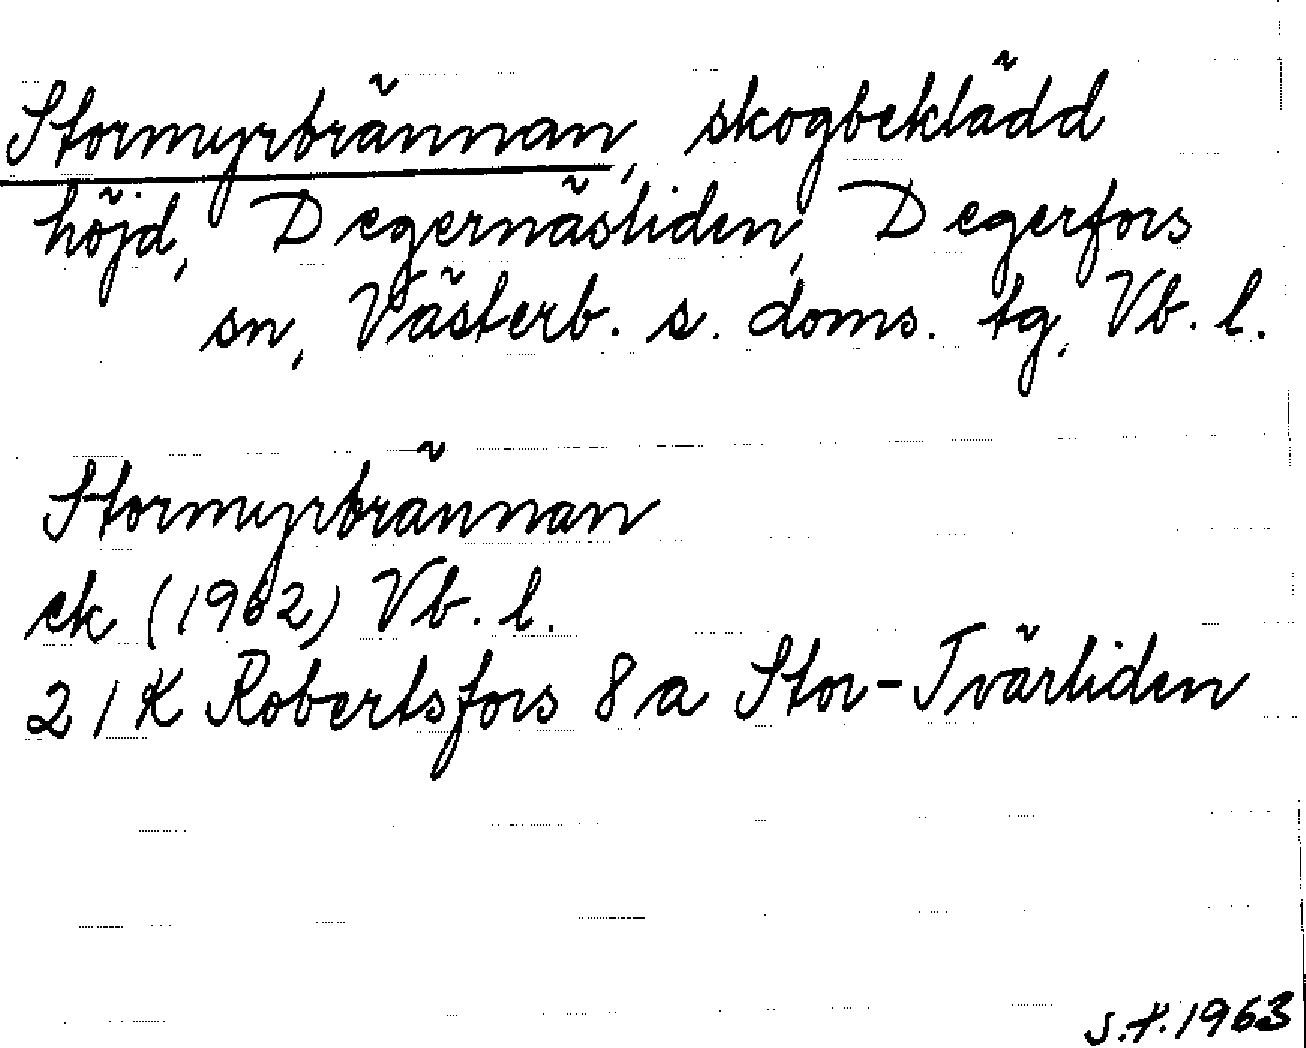 Stormyrbrännan, skogbeklädd
höjd, Degernäsliden, Degerfors
sn, Västerb. s. doms. tg, Vb. l.
Stormyrbrännan
ek (1962) Vb. l.
21K Robertsfors 8a Stor-Tvärliden
S.F. 1963